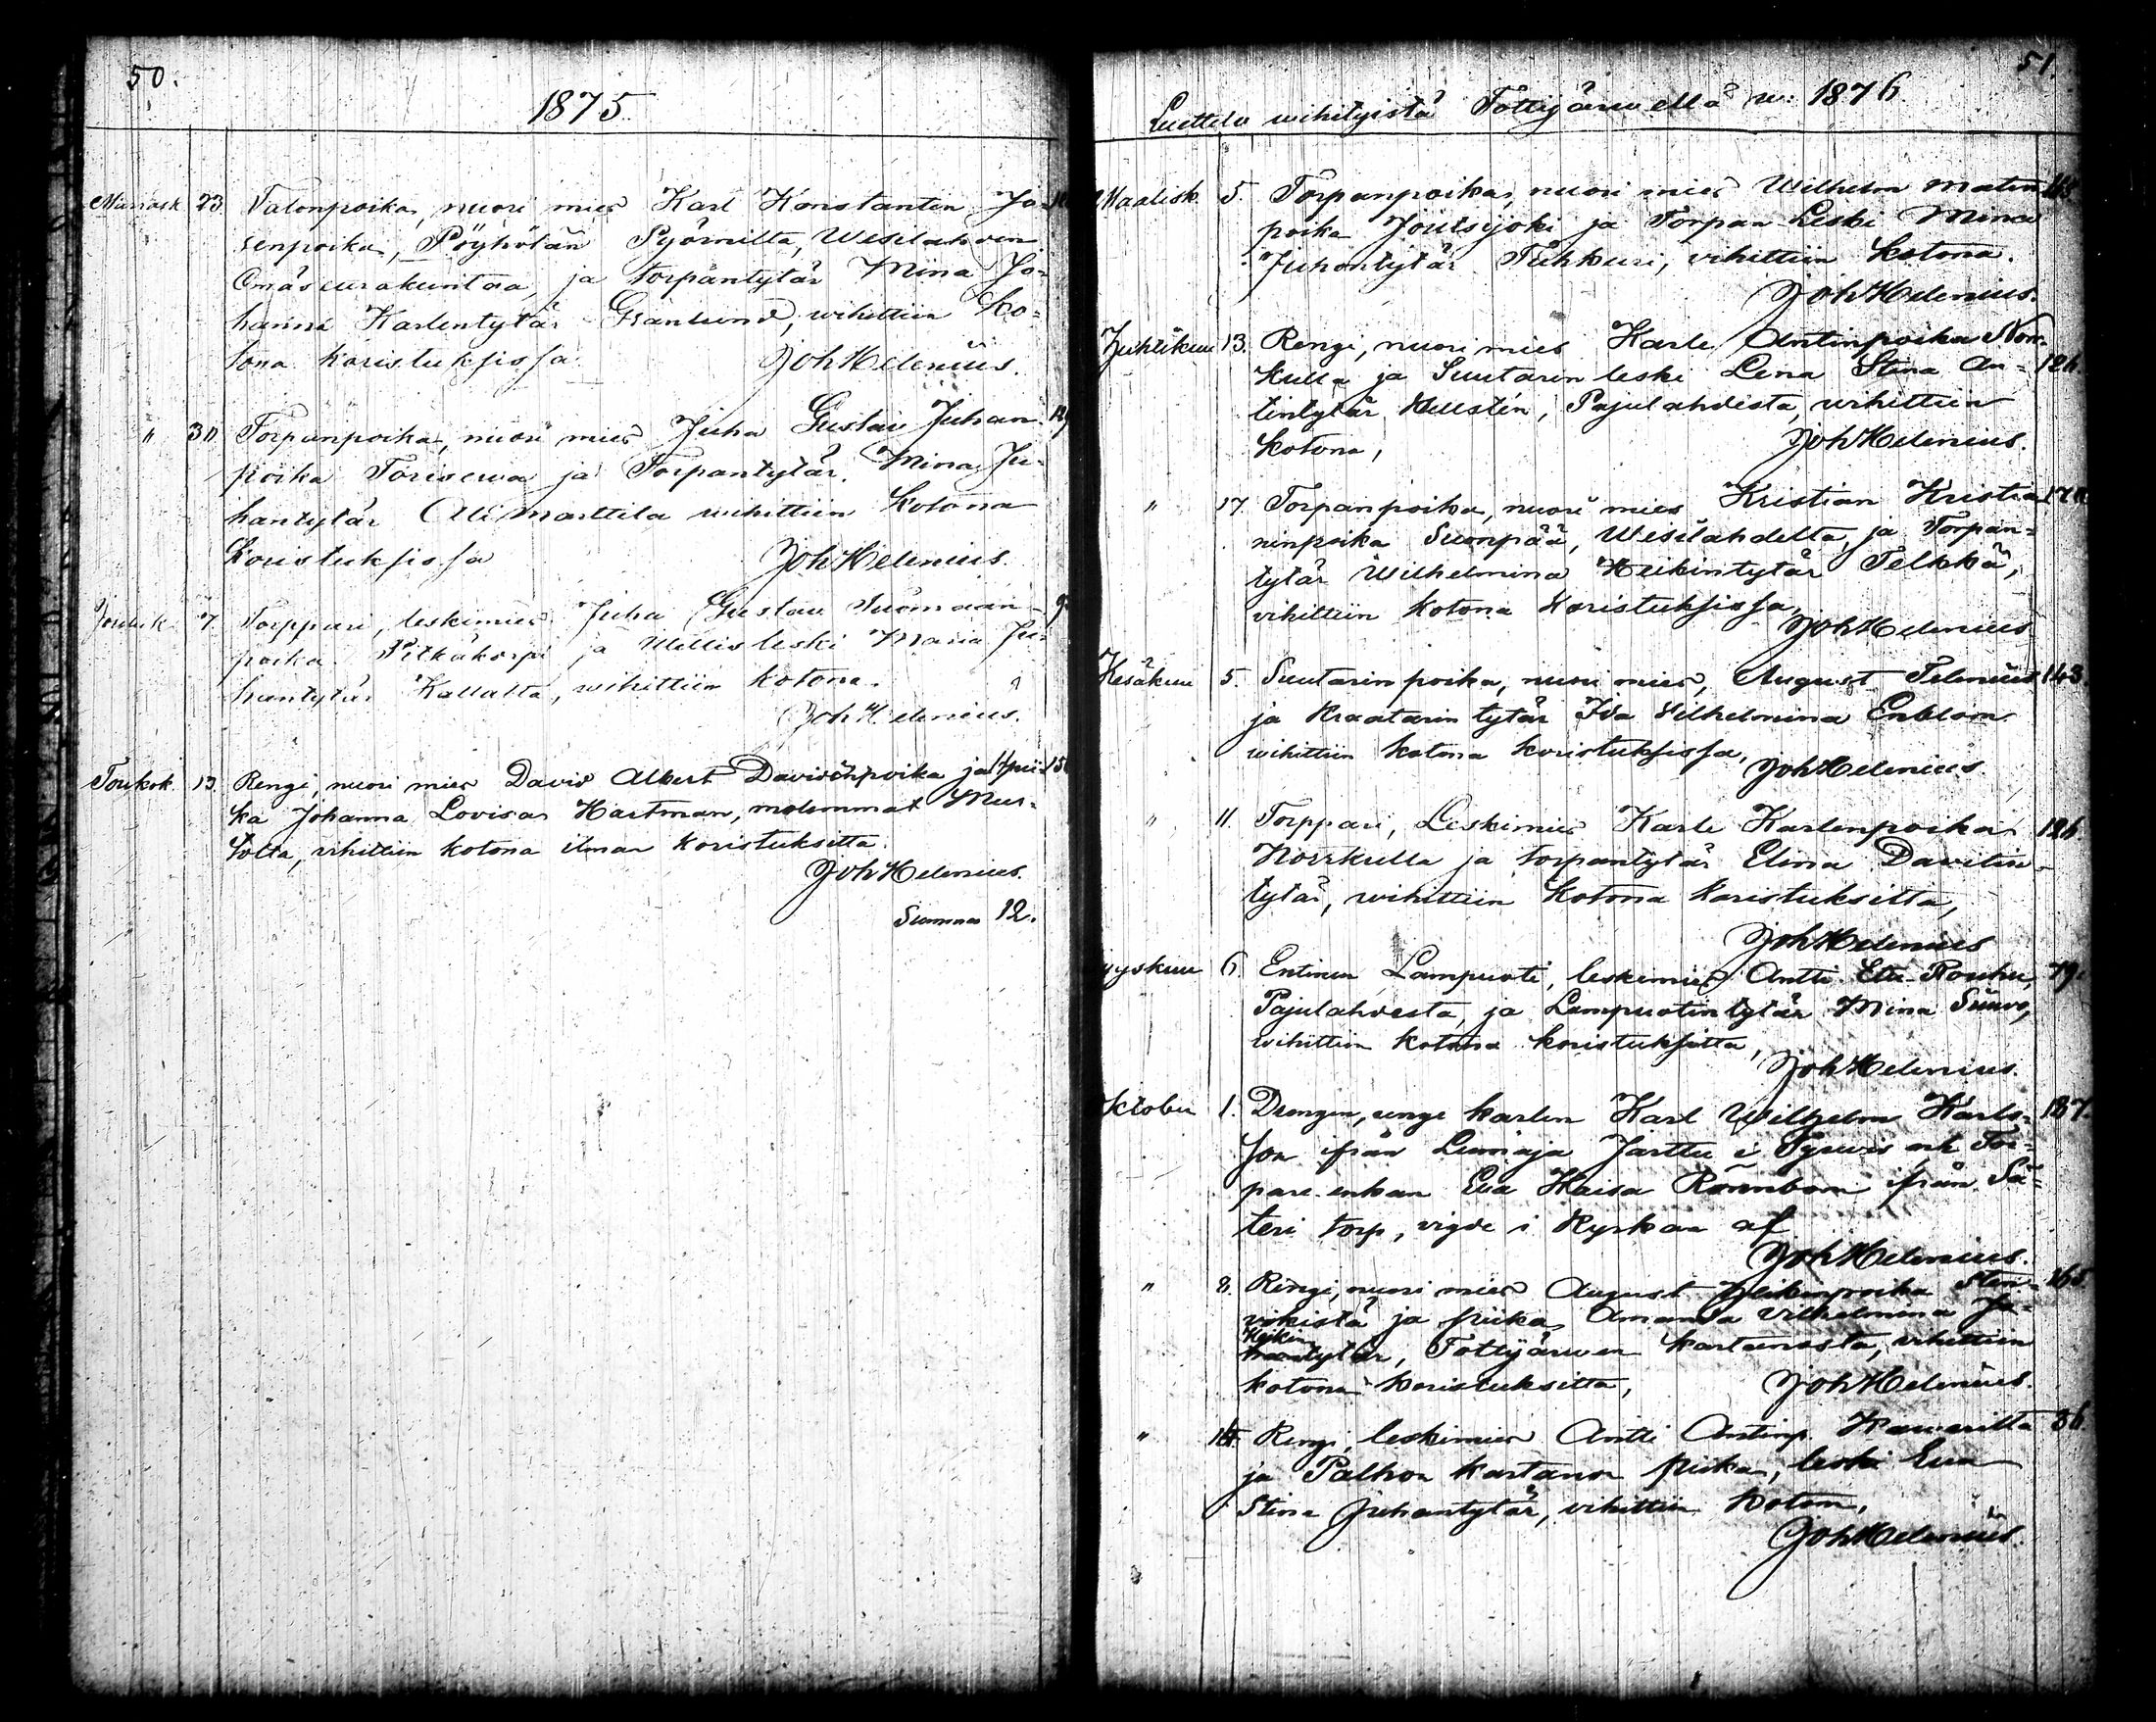 50.
1875
Marrask. 23. Talonpoika, nuori mies Karl Konstantin Jo-
senpoika, Pöyhölän Pyörniltä, Wesilahden
Omäseurakuntaa, ja torpantytär Mina Jo-
hanna Karlentytär Gränlund, wihittiin ko-
tona koristuksissa. Joh Helenius.
" 30. Torpanpoika, nuori mies Juha Gustav Juhan-
poika Torisewa ja Torpantytär Mina Ju-
hantytär Ali Marttila wihittiin kotona
koristuksissa Joh Helenius.
Jouluk. 7. Torppari, leskimies Juha Gustav Tuomaan-
poika Pitkäkorpi ja leski Maria Ju-
hantytär Kallalta, wihittiin kotona.
Joh Helenius.
Toukok. 13. Rengi, nuori mies David Albert Davidinpoika ja pii-
ka Johanna Lovisa Hartman, molemmat
vihittiin kotona ilman koristuksitta.
Joh Helenius.
Summa 12.
51.
Luettelo wihityistä Tottijärwellä w: 1876
Maalisk. 5. Torpanpoika, nuori mies Wilhelm Matin
poika Joutsijoki ja Torpan Leski Mina
Juhantytär Tuhkuri, vihittiin kotona.
Joh Helenius.
Huhtikuu 13. Rengi, nuori mies Karle Antinpoika Norr-
kulla ja Suutarin leski Lena Stina An- 126
tintytär Hellstén, Pajulahdesta, wihittiin
kotona, Joh Helenius.
" 17. Torpanpoika, nuori mies Kristian Kristia
ninpoika Suonpää, Wesilahdelta, ja Torpan-
tytär Wilhelmina Heikintytär Telkkä,
vihittiin kotona koristuksissa,
Joh Helenius
Kesäkuu 5. Suutarin poika, nuori mies, August Telenius 143
ja Kraatarin tytär Ida Vilhelmina Enblom
wihittiin kotona koristuksissa,
Joh Helenius.
" 11. Torppari, Leskimies Karle Karlenpoika 126.
Norrkulla ja torpantytär Elina Davitin-
tytär, wihittiin kotona koristuksitta,
Joh Helenius
yyskuu 6. Entinen Lampuoti, leskimies Antti Rouhu, 79.
Pajulahdesta, ja Lampuotin tytär Mina
wihittiin kotona koristuksitta,
Joh Helenius.
ktober 1. Drengen, unge karlen Karl Wilhelm Karls- 187.
son ifrån Lumiaja Jarttu i Tyrwis och Tor-
pare enkan Eva Kaisa Rönnbom ifrån Sä-
teri torp, vigde i Kyrkan af
Joh Helenius.
" 8. Rengi, nuori mies August Heikinpoika Sten- 165
vikistä ja piika Amanda Vilhelmina Ju-
Heikin
hantytär, Tottijärwen kartanosta, vihittiin
kotona koristuksitta, Joh Helenius.
" Rengi, leskimies Antti Antinp. 36
ja Palhon kartanon piika, leski Eva
Stina Juhantytär, vihittiin kotona,
Joh Helenius.